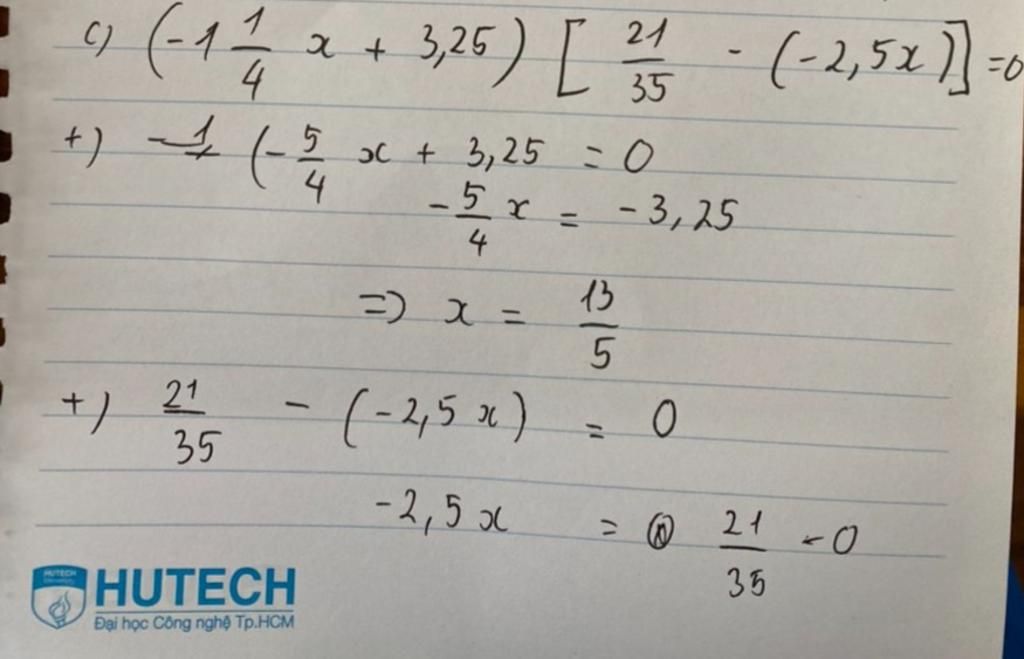 c) (-1 1/4 x + 3,25) [ 21/35 - (-2,5x)] = 0
+) (- 5/4 x + 3,25 = 0
- 5/4 x = -3,25
=> x = 13/5
+) 21/35 - (-2,5x) = 0
-2,5x = 21/35 - 0
HUTECH
University
HUTECH
Đại học Công nghệ Tp.HCM